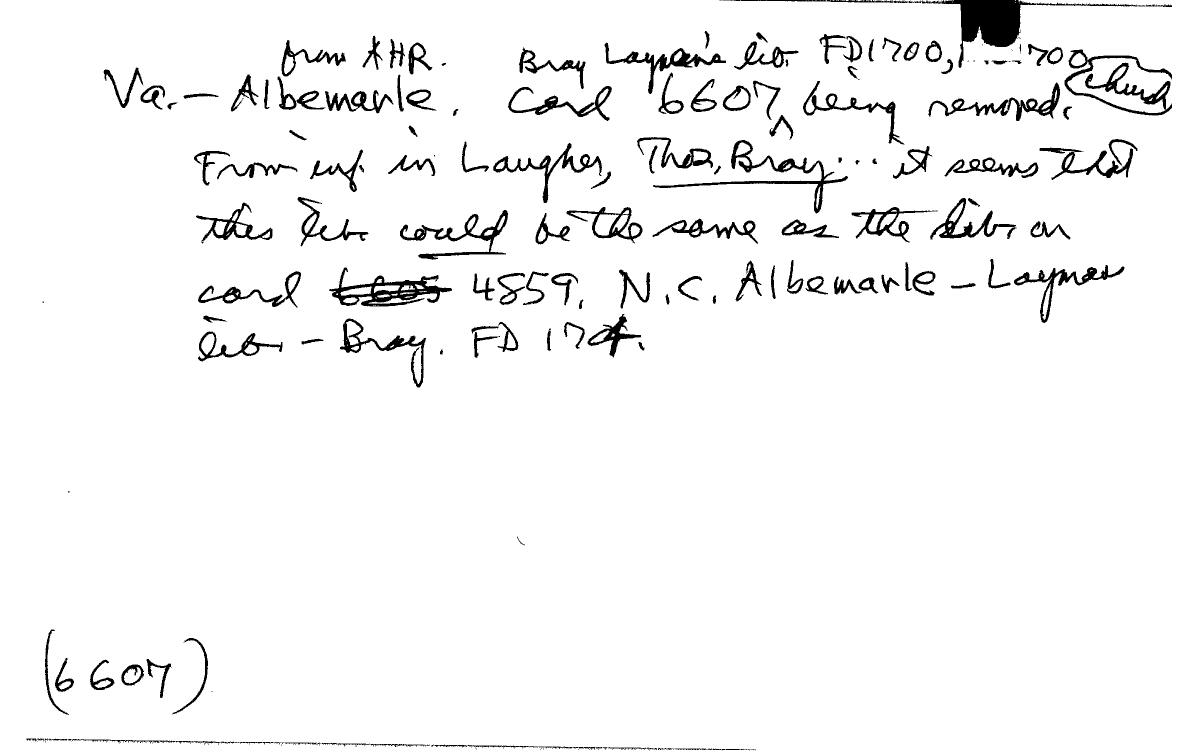 from AHR. Bray Layman's lib. FD1700, 1700, church
Va. – Albemarle. Card 6607 ^ being removed.
From inf. in Laugher, Thos. Bray... it seems that
this lib. could be the same as the lib. on
card 6605 4859. N.C. Albemarle – Layman
lib. – Bray. FD 170
(6607)